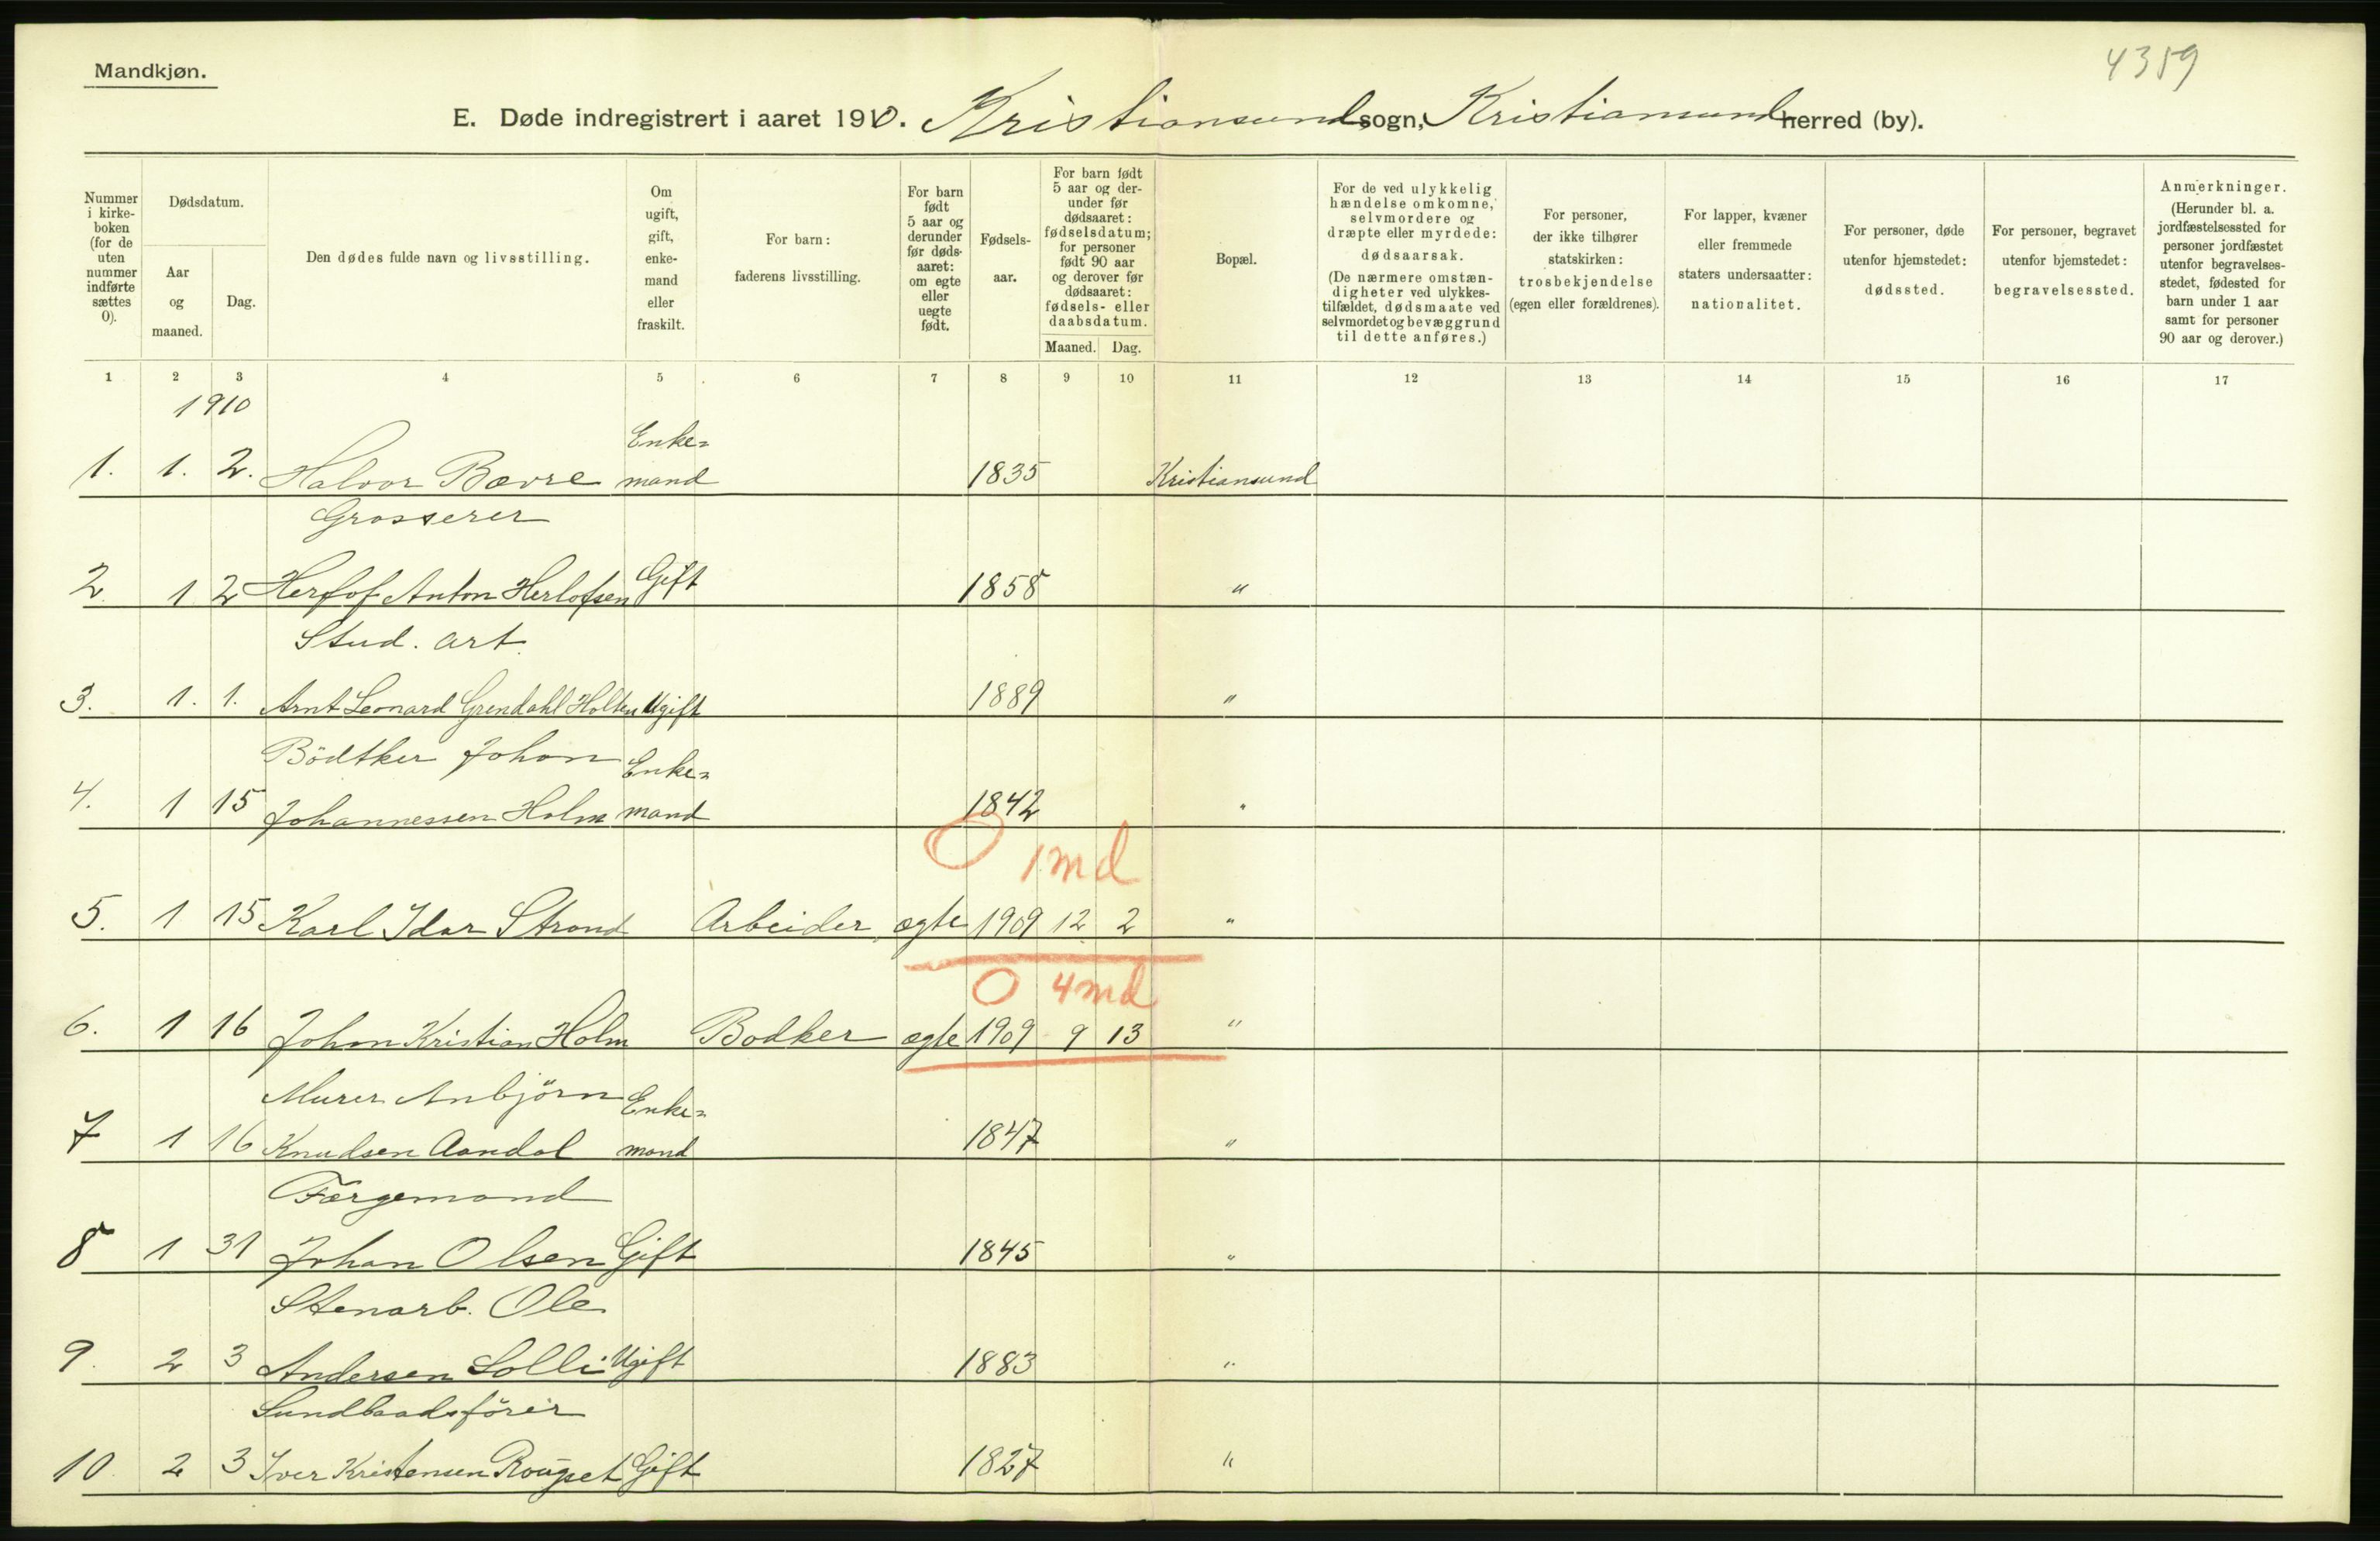 Mandkjøn.
4359
E. Døde indregistrert i aaret 1910. Kristiansund sogn, Kristiansund herred (by).
Nummer i kirkeboken (for de uten nummer indførte sættes 0).
Dødsdatum.
Aar og maaned.
Dag.
Den dødes fulde navn og livsstilling.
Om ugift, gift, enkemand eller fraskilt.
For barn: faderens livsstilling.
For barn født 5 aar og derunder før dødsaaret: om egte eller uegte født.
Fødselsaar.
For barn født 5 aar og derunder før dødsaaret: fødselsdatum; for personer født 90 aar og derover før dødsaaret: fødsels- eller daabsdatum.
Maaned. Dag.
Bopæl.
For de ved ulykkelig hændelse omkomne, selvmordere og dræpte eller myrdede: dødsaarsak. (De nærmere omstændigheter ved ulykkestilfældet, dødsmaate ved selvmordet og bevæggrund til dette anføres.)
For personer, der ikke tilhører statskirken: trosbekjendelse (egen eller forældrenes).
For lapper, kvæner eller fremmede staters undersaatter: nationalitet.
For personer, døde utenfor hjemstedet: dødssted.
For personer, begravet utenfor hjemstedet: begravelsessted.
Anmerkninger. (Herunder bl. a. jordfæstelsessted for personer jordfæstet utenfor begravelsesstedet, fødested for barn under 1 aar samt for personer 90 aar og derover.)
1 2 3 4 5 6 7 8 9 10 11 12 13 14 15 16 17
1910
Enke=
1. 1. 2. Halvor Bævre mand 1835 Kristiansund
Grosserer
2. 1 2 Herlof Anton Herlofsen Gift 1858 "
Stud. art.
3. 1. 1. Arnt Leonard Grendahl Holten Ugift 1889 "
Bödtker Johan Enke=
4. 1 15 Johannessen Holm mand 1842 "
O 1 md
5. 1 15 Karl Idar Strand Arbeider ægte 1909 12 2 "
O 4 md
6. 1 16 Johan Kristian Holm Bødker ægte 1909 9 13 "
Murer Anbjörn Enke=
7 1 16 Knudsen Aandal mand 1847 "
Færgemand
8 1 31 Johan Olsen Gift 1845 "
Stenarb. Ole
9. 2 3 Andersen Solli Ugift 1883 "
Sundbaadsförer
10. 2 3 Iver Kristensen Gift 1827 "